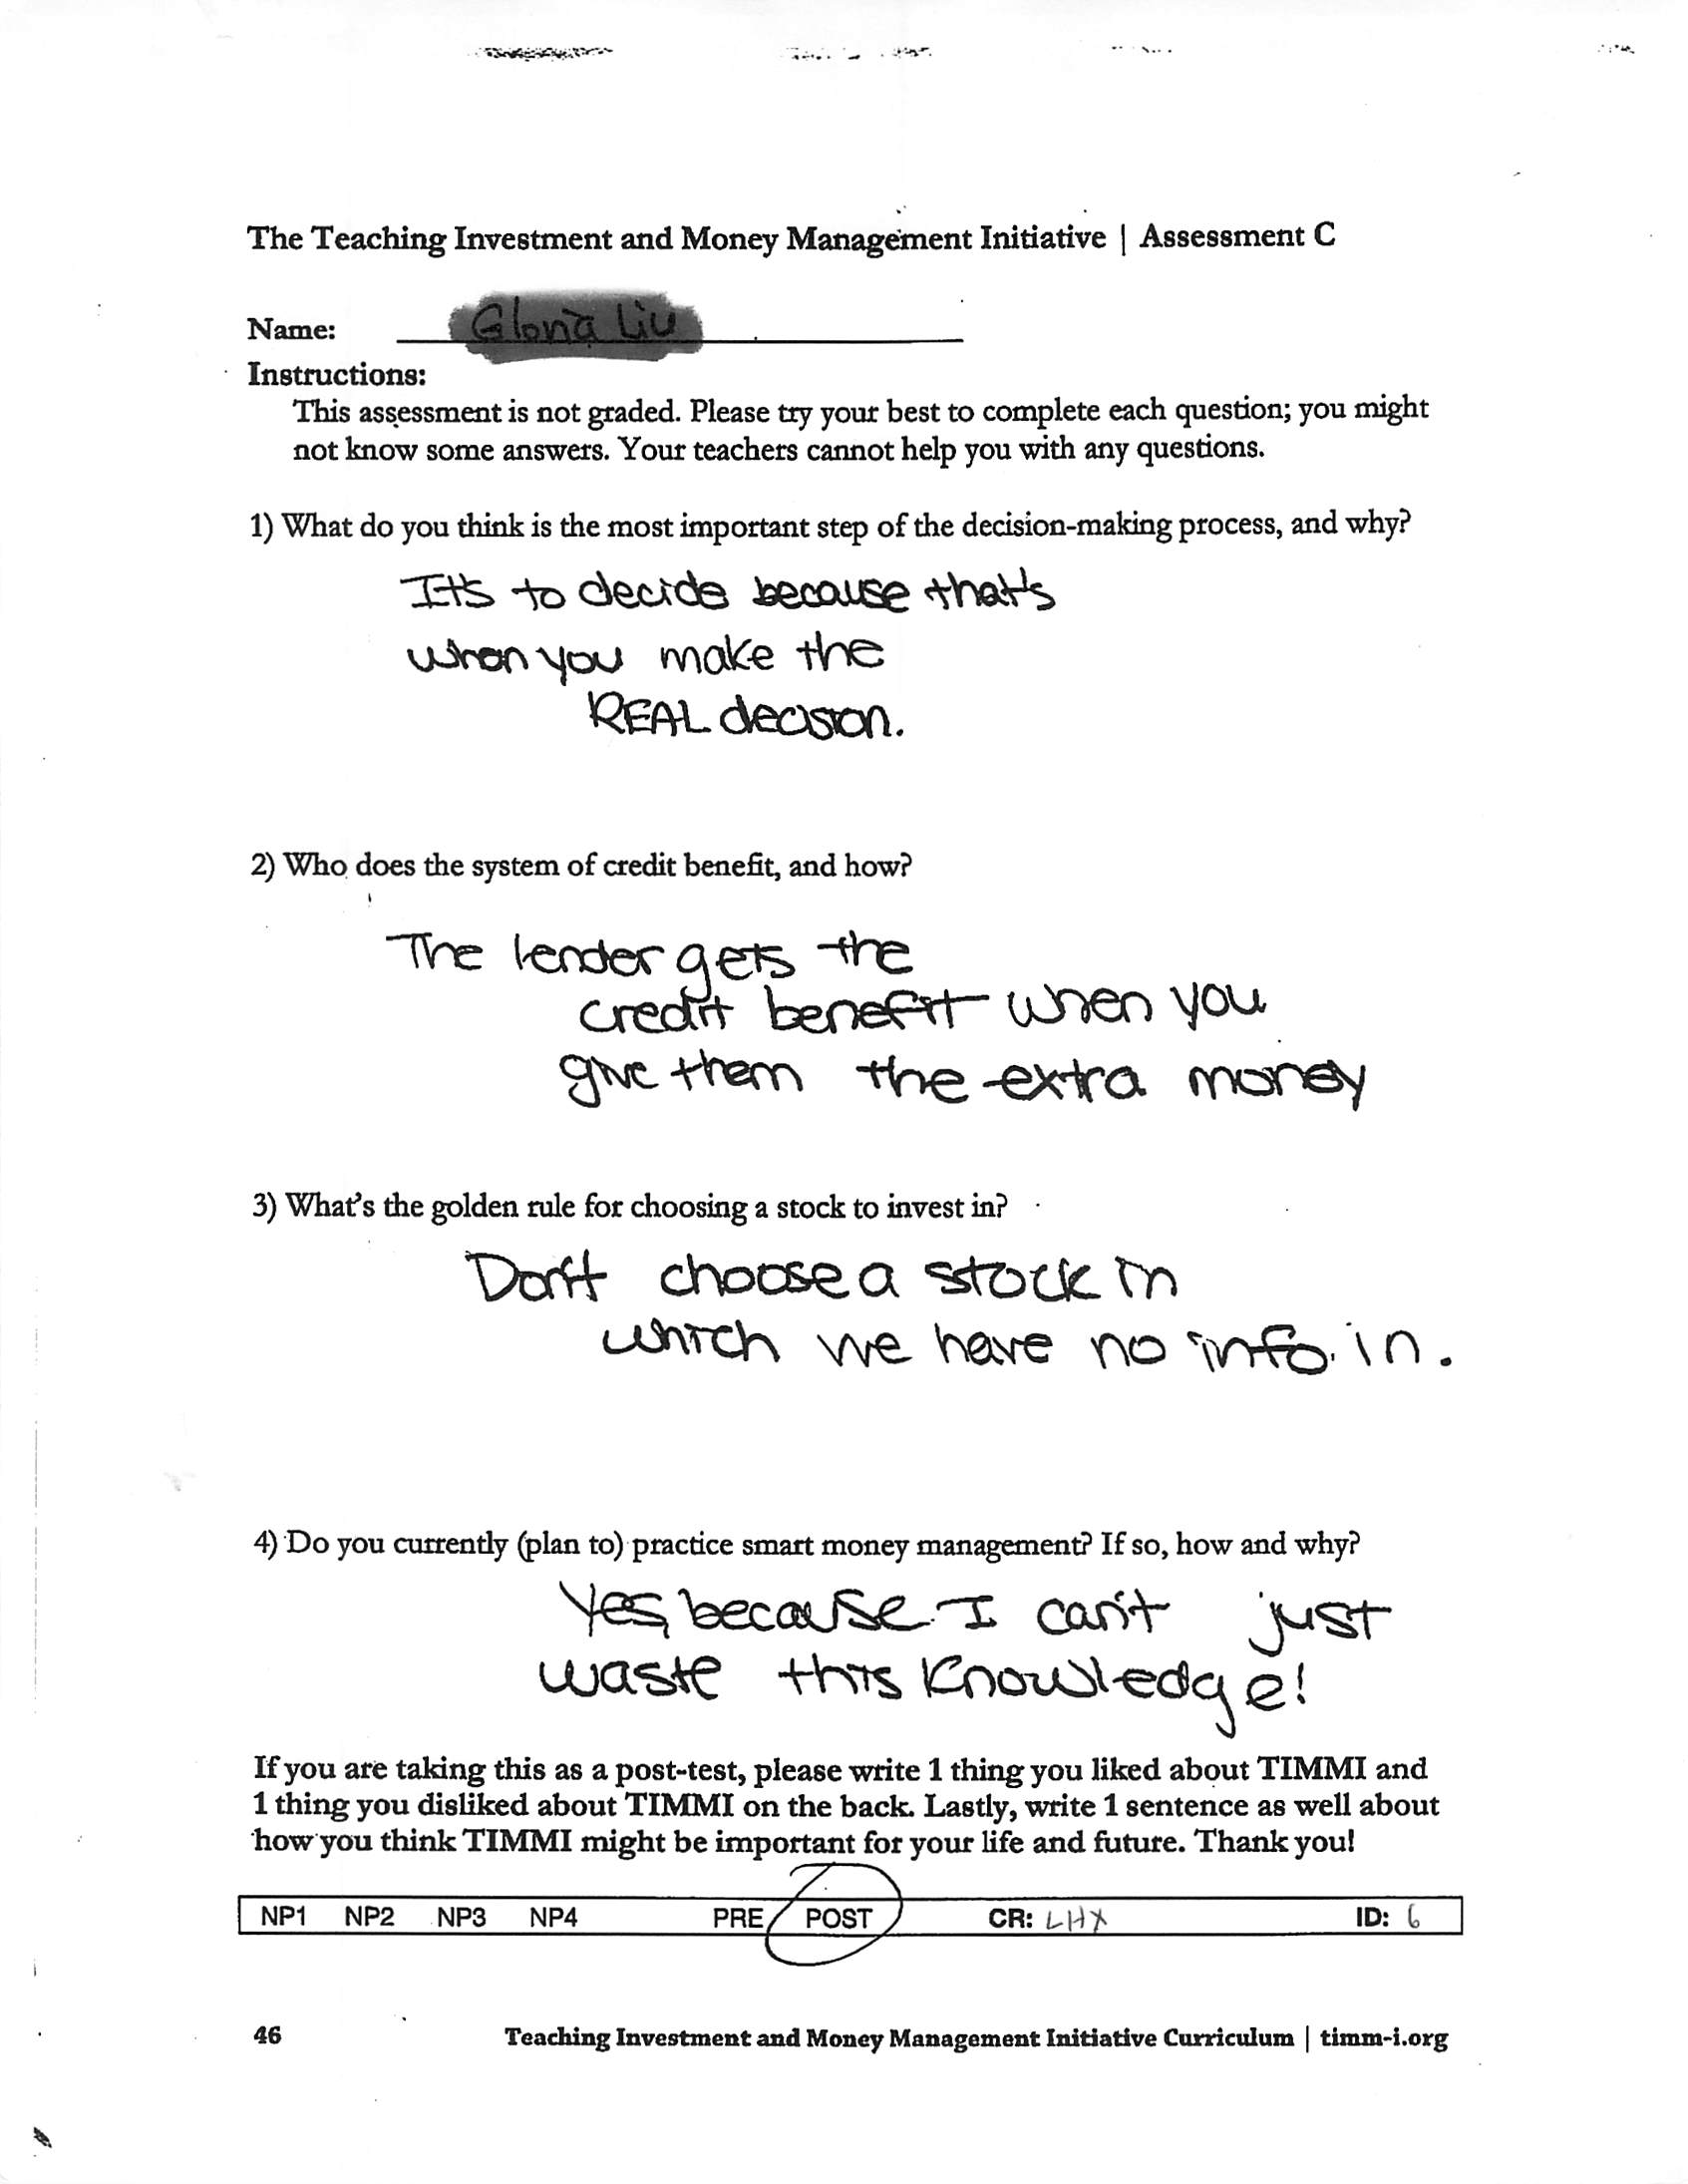 The Teaching Investment and Money Management Initiative | Assessment C
Name:
Instructions:
This assessment is not graded. Please try your best to complete each question; you might
not know some answers. Your teachers cannot help you with any questions.
1) What do you think is the most important step of the decision-making process, and why?
It's to decide because that's
when you make the
REAL decision.
2) Who does the system of credit benefit, and how?
The lender gets the
credit benefit when you
give them the extra money
3) What's the golden rule for choosing a stock to invest in?
Don't choose a stock in
which we have no info in.
4) Do you currently (plan to) practice smart money management? If so, how and why?
Yes, because I can't just
waste this knowledge!
If you are taking this as a post-test, please write 1 thing you liked about TIMMI and
1 thing you disliked about TIMMI on the back. Lastly, write 1 sentence as well about
how you think TIMMI might be important for your life and future. Thank you!
NP1 NP2 NP3 NP4 PRE POST CR: LHX ID: 6
46 Teaching Investment and Money Management Initiative Curriculum | timm-i.org